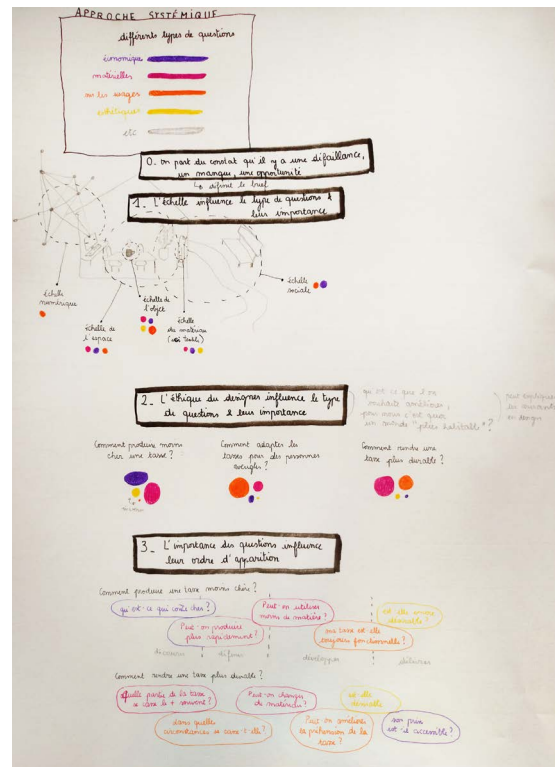 APPROCHE SYSTÉMIQUE
différents types de questions
économique
matérielles
sur les usages
esthétiques
etc
0. on part du constat qu'il y a une défaillance,
un manque, une opportunité
↳ définit le brief
1_ L'échelle influence le type de questions &
leur importance
échelle
numérique
échelle de
l'espace
échelle de
l'objet
échelle
du matériau
(ici textile)
échelle
sociale
2_ L'éthique du designer influence le type
de questions & leur importance
qu'est ce que l'on
souhaite améliorer,
pour nous c'est quoi
un monde "plus habitable"?
peut expliquer
en
Comment produire moins
cher une tasse?
Comment adapter les
tasses pour des personnes
aveugles?
Comment rendre une
tasse plus durable?
3_ L'importance des questions influence
leur ordre d'apparition
Comment produire une tasse moins cher?
qu'est-ce qui coûte cher?
Peut-on produire
plus rapidement?
Peut-on utiliser
moins de matière?
ma tasse est-elle
toujours fonctionnelle?
est-elle encore
désirable?
discover
define
develop
deliver
Comment rendre une tasse plus durable?
Quelle partie de la tasse
se casse le + souvent?
dans quelles
circonstances se casse-t-elle?
Peut-on changer
de matériau?
Peut-on améliorer
la préhension de la
tasse?
est-elle
désirable
son prix
est-il accessible?